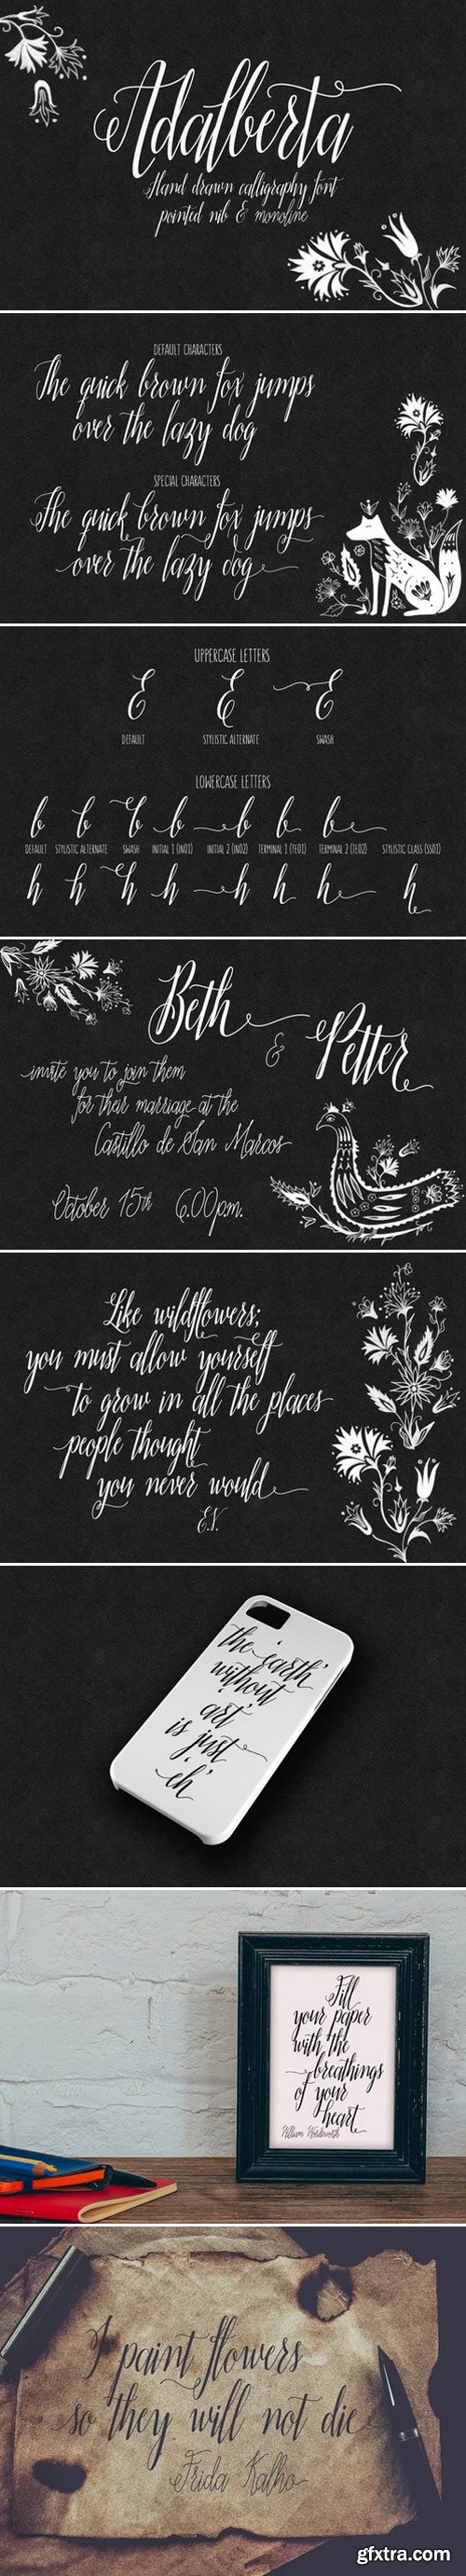 Adalberta
Hand drawn calligraphy font
pointed nib & monoline
DEFAULT CHARACTERS
The quick brown fox jumps
over the lazy dog
SPECIAL CHARACTERS
The quick brown fox jumps
over the lazy dog
UPPERCASE LETTERS
E E E
DEFAULT STYLISTIC ALTERNATE SWASH
LOWERCASE LETTERS
b b b b b b b
DEFAULT STYLISTIC ALTERNATE SWASH INITIAL 1 (IN01) INITIAL 2 (IN02) TERMINAL 1 (TE01) TERMINAL 2 (TE02) STYLISTIC CLASS (SS01)
h h h h h h h h
Beth
&
Petter
invite you to join them
for their marriage at the
Castillo de San Marcos
October 15th 6.00p.m.
Like wildflowers;
you must allow yourself
to grow in all the places
people thought
you never would
E.V.
'the earth'
without
'art'
is just
'eh'
Fill
your paper
with the
breathings
of your
heart
William Wordsworth
I paint flowers
so they will not die
Frida Kalho
gfxtra.com